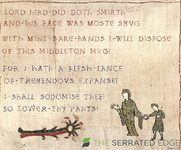 LORD HIRD DID DOTH SMIRTH
AND HIS FACE WAS MOSTE SMUG
WITH MINE BARE HANDS I WILL DISPOSE
OF THIS MIDDLETON MUG!
FOR I HATH A FLESH LANCE
OF TREMENDOUS EXPANSE!
I SHALL SODOMISE THEE!
SO LOWER THY PANTS!
THE SERRATED EDGE